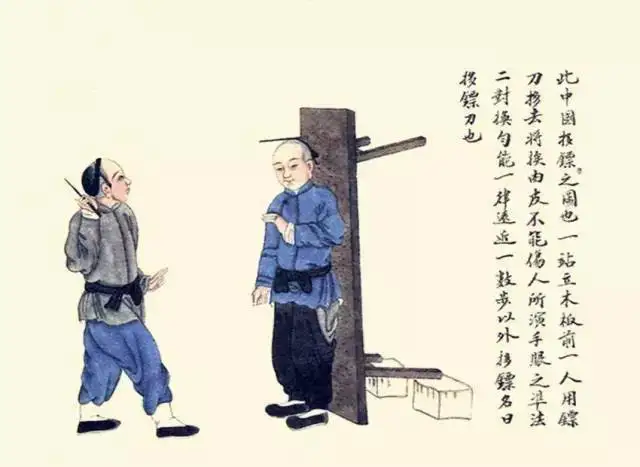 此中國扔鏢之圖也一站立木板前一人用鏢
刀扔去將挨皮不能傷人所演手眼之準法
二對換勻能一律遠近一數步以外扔鏢名曰
扔鏢刀也